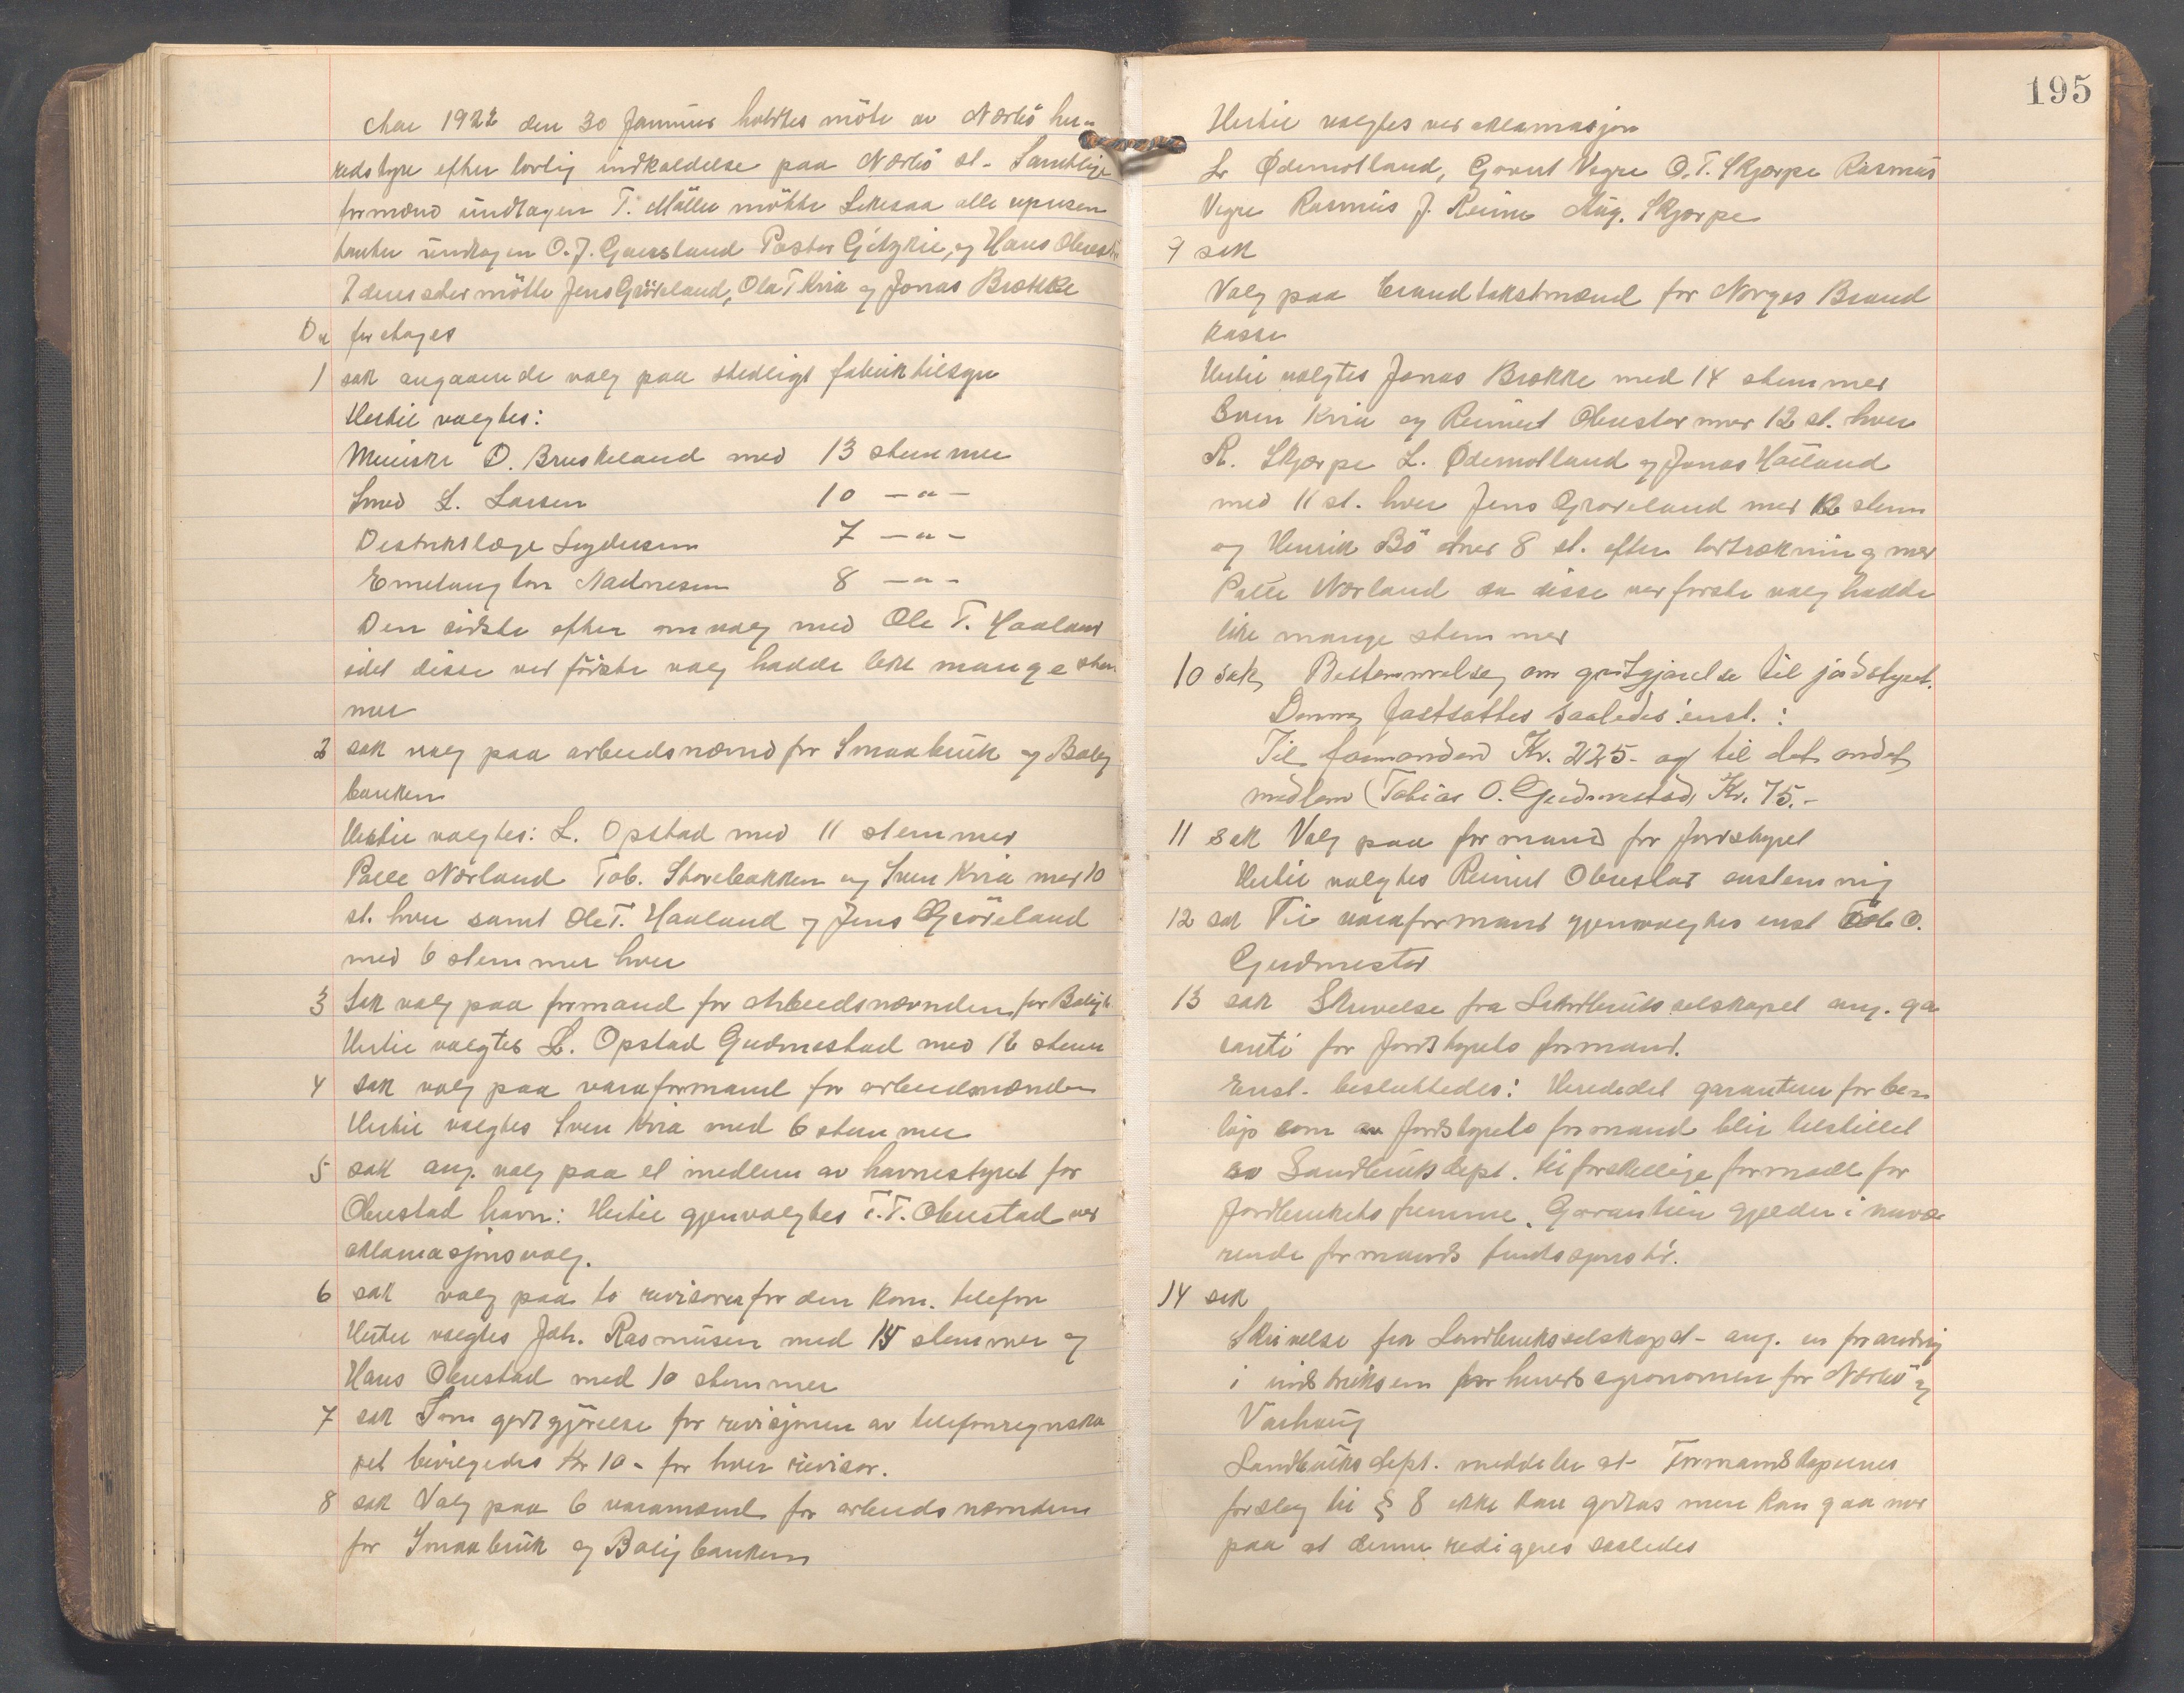 Aar 1922 den 30 Januar holdtes möte av Nærbö her-
redstyre efter lovlig indkaldelse paa Nærbö st. Samtlige
formænd undtagen T. Möller mötte Likesaa alle represen
tanter undtagen O. J. Gausland Pastor Gitzkie, og Hans Obrestad
I deres sted mötte Jens Gröteland, Ola T Kvia og Jonas Brække
Da foretages
1 sak angaaende valg paa stedligt fabriktilsyn
Hertil valgtes:
Meieske O. Bruskeland med 13 stemmer
Smed L. Larsen 10 - " -
Distriktslæge Seydersen 7 - " -
Emil Nadnesen 8 - " -
Den sidste efter omvalg med Ole T. Haaland
idet disse ved förste valg hadde like mange stem
mer
2 sak valg paa arbeidsnævnd for Smaabruk og Bolig
banken
Hertil valgtes: L. Opstad med 11 stemmer
Palle Nærland Tob. Storebakken og Sven Kvia med 10
st. hver samt Ole T. Haaland og Jens Gröteland
med 6 stemmer hver
3 Sak valg paa formand for Arbeidsnævnden for Boligb.
Hertil valgtes L. Opstad Gudmestad med 12 stem
4 sak valg paa varaformand for arbeidsnævnden
Hertil valgtes Sven Kvia med 6 stemmer
5 sak ang. valg paa et medlem av havnestyret for
Obrestad havn: Hertil gjenvalgtes T. T. Obrestad ved
aklamasjonsvalg.
6 sak valg paa to revisorer for den kom. telefon
Hertil valgtes Joh. Rasmusen med 15 stemmer og
Hans Obrestad med 10 stemmer
7 sak Som godtgjörelse for revisjonen av telefonregnska
pet bevilgedes Kr 10- for hver revisor.
8 sak Valg paa 6 varamænd for arbeidsnævnden
for Smaabruk og Boligbanken
195
Hertil valgtes ved aklamasjon
Lr Ødemotland, Govert Vegre O. T. Skjærpe Rasmus
Vegre Rasmus J. Reime Aug. Skjærpe
9 sak
Valg paa Brandtakstmænd for Norges Brand
kasse
Hertil valgtes Jonas Brække med 14 stemmer
Sven Kvia og Reinert Obrestad med 12 st. hver
R. Skjærpe L. Ødemotland og Jonas Håland
med 11 st. hver Jens Gröteland med 12 stem
og Henrik Bö med 8 st. efter lodtrækning med
Palle Nærland da disse ved förste valg hadde
like mange stemmer
10 sak, Bestemmelse om godtgjörelse til jordstyret.
Denne fastsattes saaledes enst.:
Til formanden Kr. 225- og til det andet
medlem (Tobias O. Gudmestad, Kr. 75.-
11 sak Valg paa formand for Jordstyret
Hertil valgtes Reinert Obrestad enstemmig
12 sak Til varaformand gjenvalgtes enst Tob. O.
Gudmestad
13 sak Skrivelse fra Landbruksselskapet ang. ga
ranti for Jordstyrets formand.
Enst. besluttedes: Herredet garanterer for be-
löp som av Jordstyrets formand blir tilstillet
av Landbruksdept. til forskellige formaal for
Jordbrukets fremme. Garantien gjelder i nuvæ
rende formands funksjonstid.
14 sak
Skrivelse fra Landbruksselskapet ang. en forandring
i instruksen for herredsagronomen for Nærbö og
Varhaug
Landbruksdept. meddeler at Formandskapernes
forslag til § 8 ikke kan godtas men kan gaa med
paa at denne redigeres saaledes